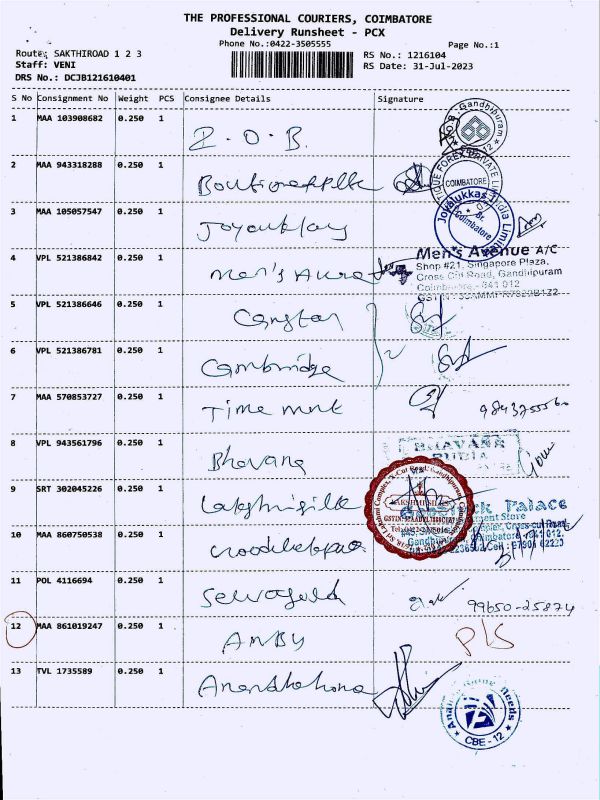 THE PROFESSIONAL COURIERS, COIMBATORE
Delivery Runsheet - PCX
Phone No.:0422-3505555
Page No.:1
Route: SAKTHIROAD 1 2 3
Staff: VENI
DRS No.: DCJB121610401
RS No.: 1216104
RS Date: 31-Jul-2023
S No Consignment No Weight PCS Consignee Details Signature
1 MAA 103908682 0.250 1 I.O.B.
Gandhipuram
2 MAA 943318288 0.250 1
COIMBATORE
3 MAA 105057547 0.250 1
Joyalukkas India Limited
Br.
Coimbatore
4 VPL 521386842 0.250 1 Men's
Men's Avenue A/C
Shop #21, Singapore Plaza,
Cross Cut Road, Gandhipuram
Coimbatore - 641 012
5 VPL 521386646 0.250 1
6 VPL 521386781 0.250 1 Cambridge
7 MAA 570853727 0.250 1 Time
8 VPL 943561796 0.250 1 Bhavana
9 SRT 302045226 0.250 1 Lakshmisilk
LAKSHMI SILKS
Palace
10 MAA 860750538 0.250 1
11 POL 4116694 0.250 1
99650-25874
12 MAA 861019247 0.250 1 ANBY P/S
13 TVL 1735589 0.250 1
Needs
CBE - 12